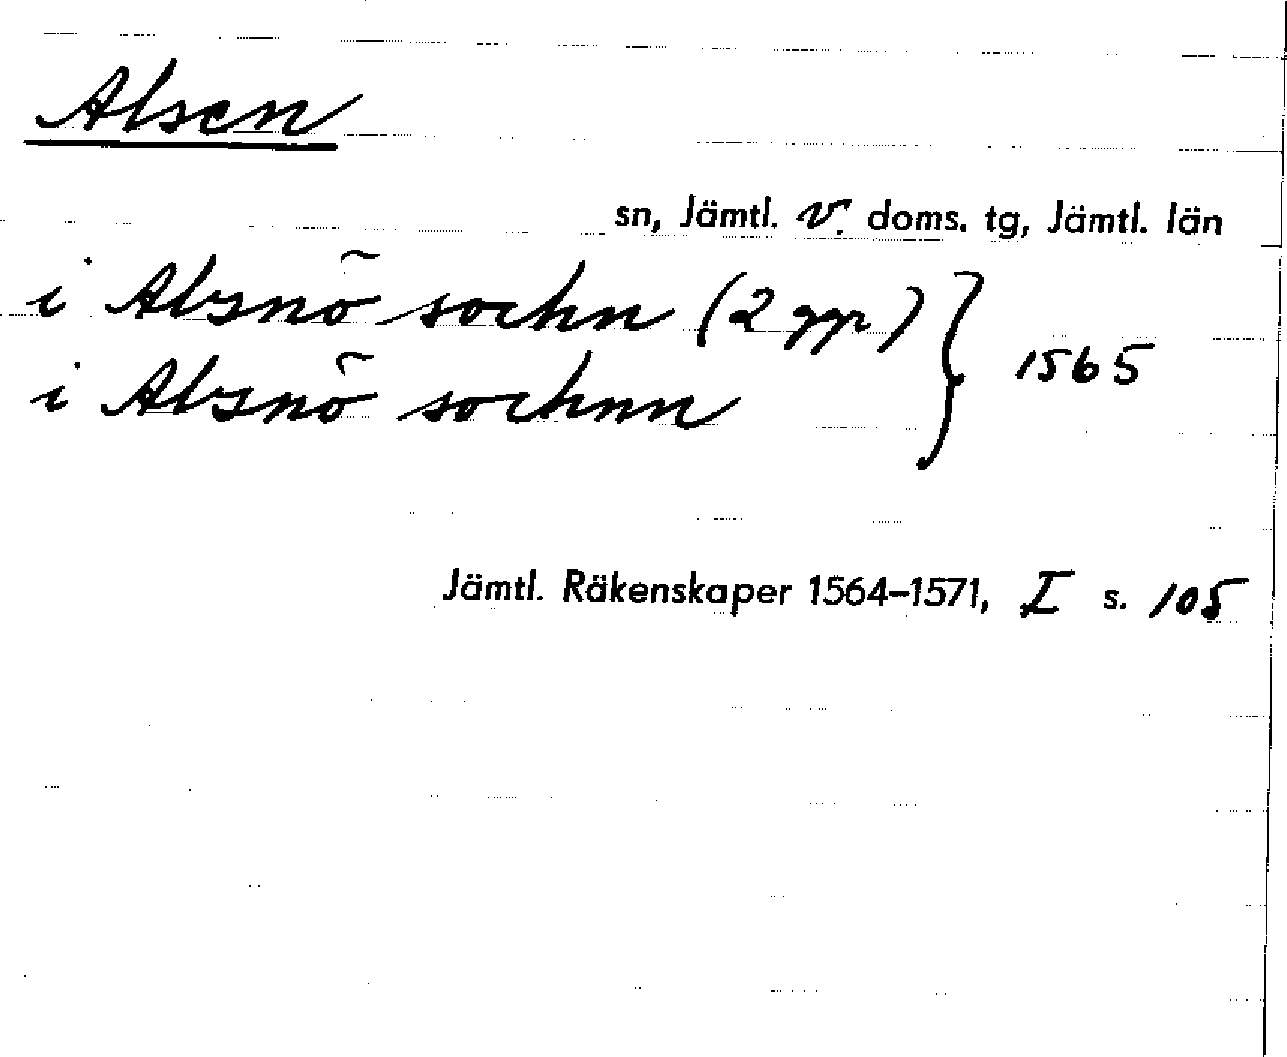 Alsen
sn, Jämtl. v. doms. tg, Jämtl. län
i Alsnö̃ sochn (2 ggr) } 1565
i Alsnö̃ sochnn
Jämtl. Räkenskaper 1564–1571, I s. 105